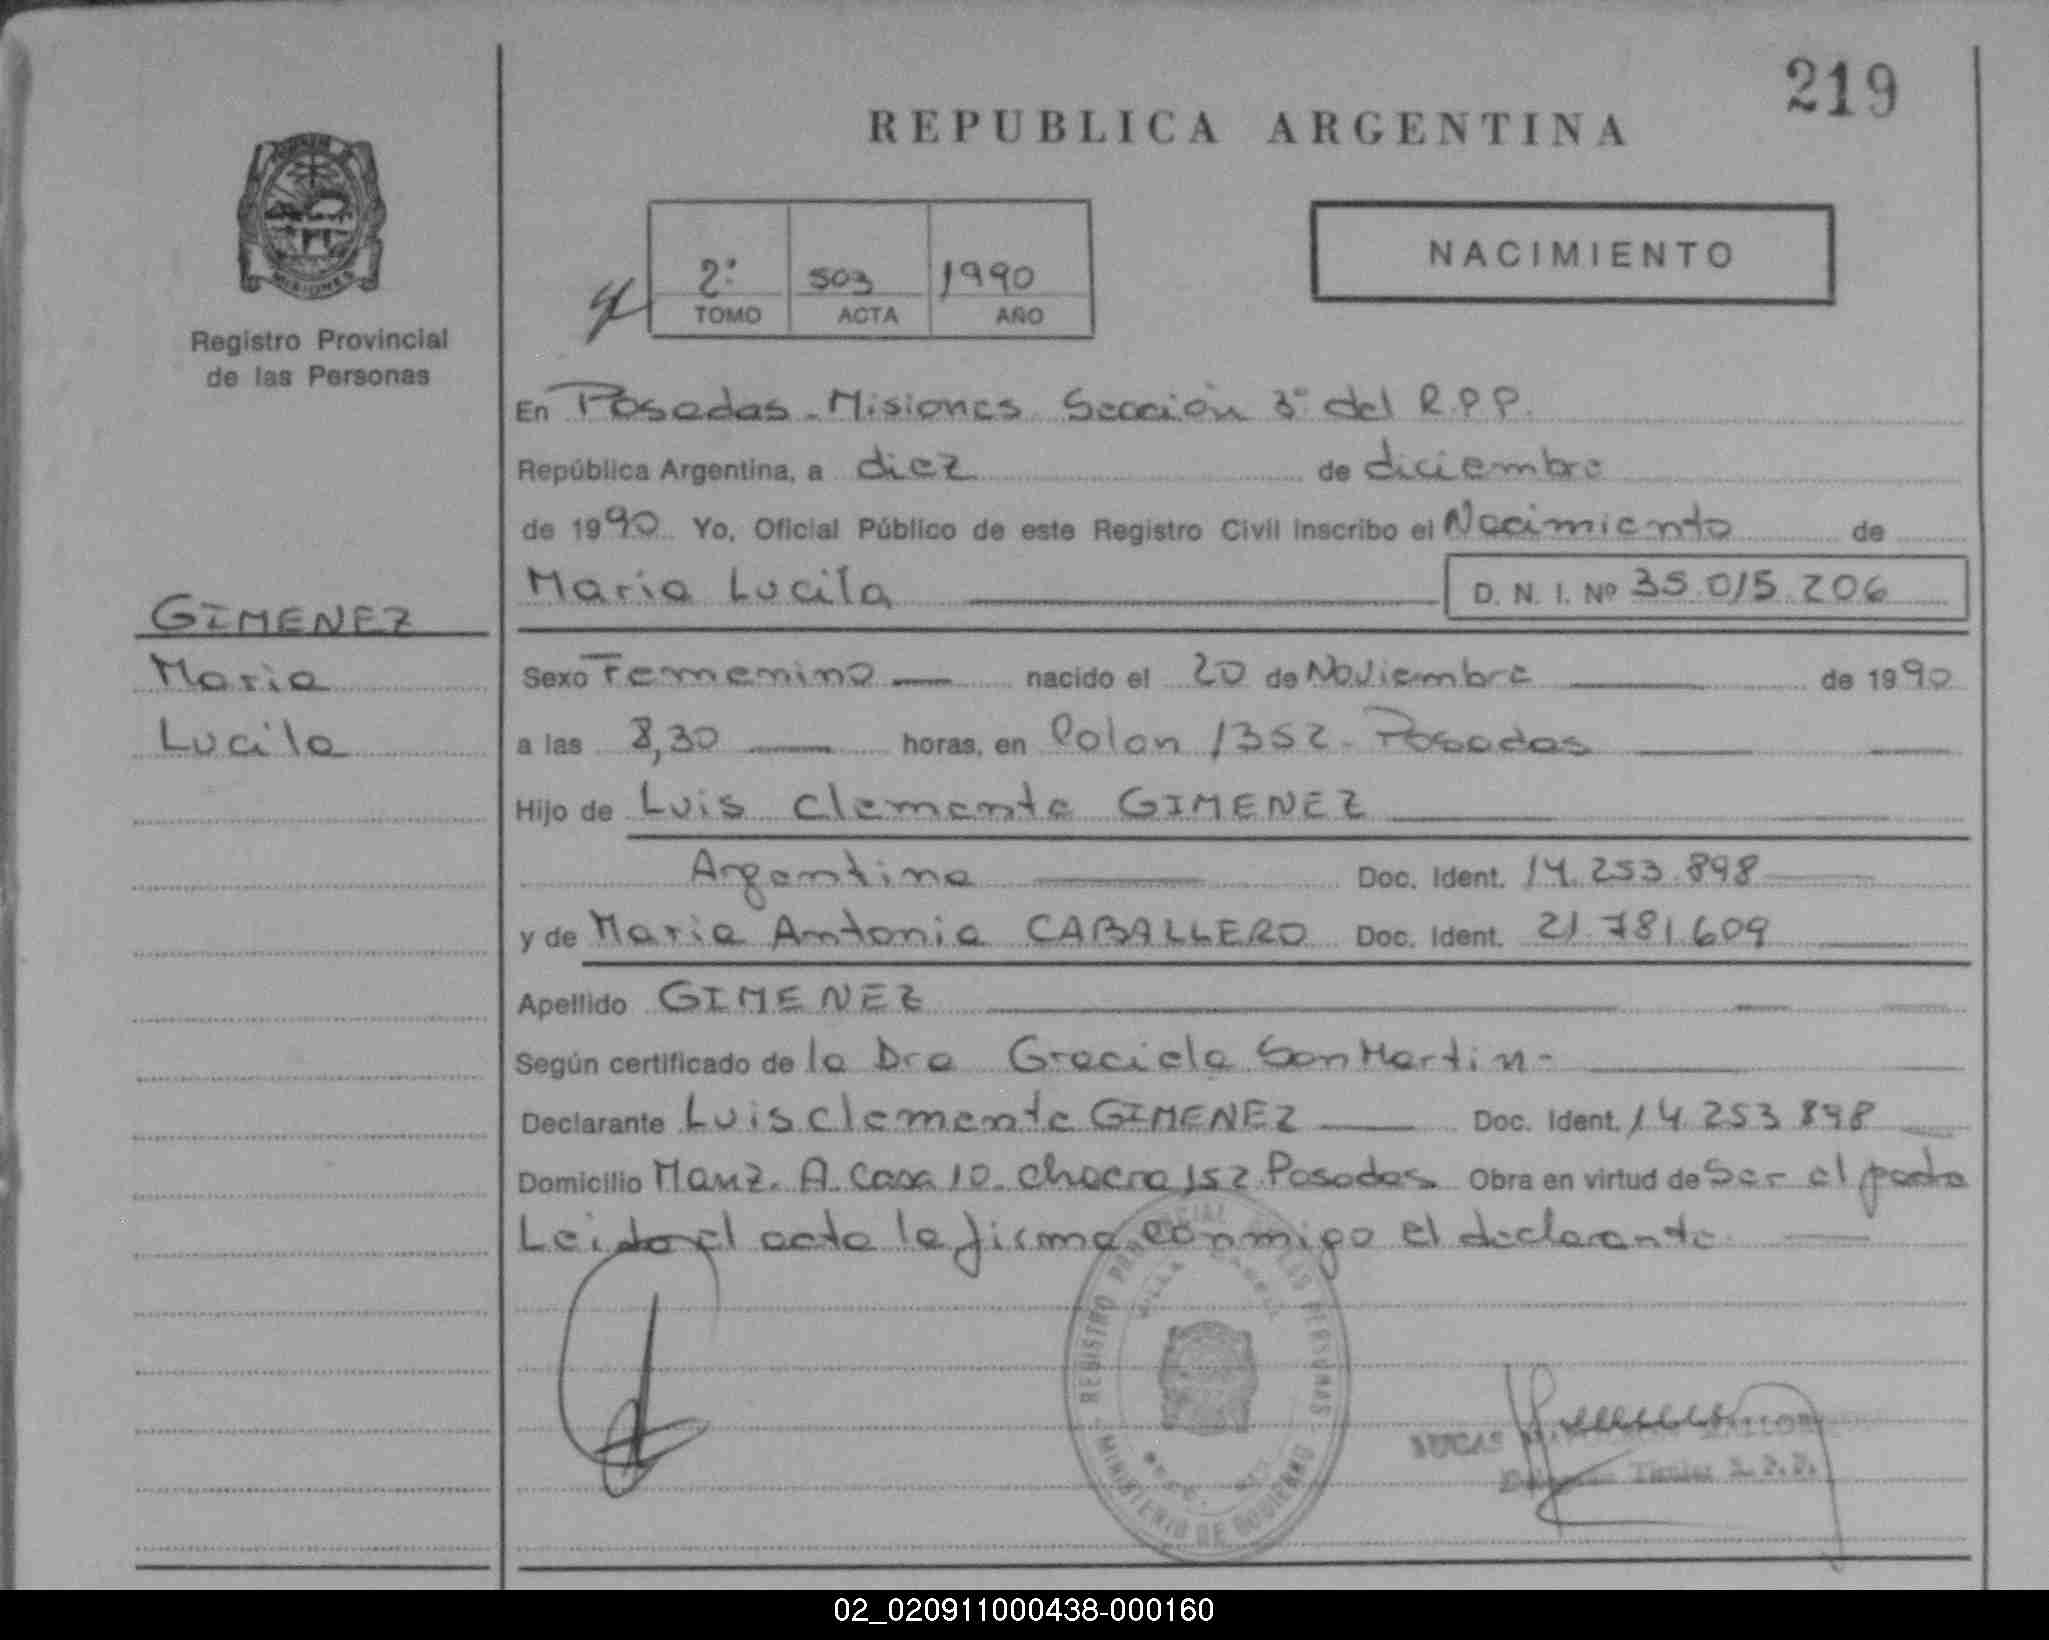 219
REPUBLICA ARGENTINA
MISIONES
Registro Provincial
de las Personas
2º 503 1990
TOMO ACTA AÑO
NACIMIENTO
En Posadas - Misiones Sección 3º del R.P.P.
República Argentina, a diez de diciembre
de 1990 Yo, Oficial Público de este Registro Civil inscribo el Nacimiento de
Maria Lucila D. N. I. Nº 35.015.206
GIMENEZ
Maria
Lucila
Sexo Femenino nacido el 20 de Noviembre de 1990
a las 8,30 horas, en Colon 1352 - Posadas
Hijo de Luis Clemente GIMENEZ
Argentina Doc. Ident. 14.253.898
y de Maria Antonia CABALLERO Doc. Ident. 21.781.609
Apellido GIMENEZ
Según certificado de la Dra Graciela San Martin -
Declarante Luis Clemente GIMENEZ Doc. Ident. 14.253.898
Domicilio Manz. A. Casa 10. Chacra 152 Posadas Obra en virtud de Ser el padre
Leida el acta la firma conmigo el declarante
REGISTRO PROVINCIAL DE LAS PERSONAS
MINISTERIO DE GOBIERNO
VILLA
LUCAS
Titular R.P.P.
02_020911000438-000160